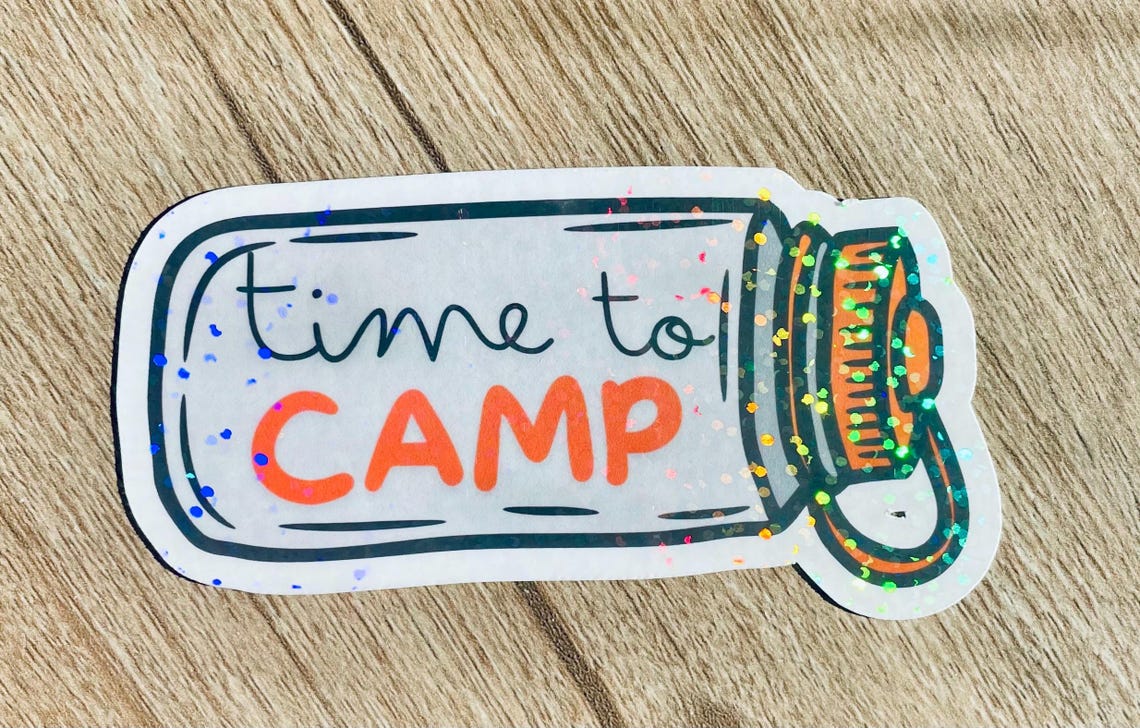 time to
CAMP